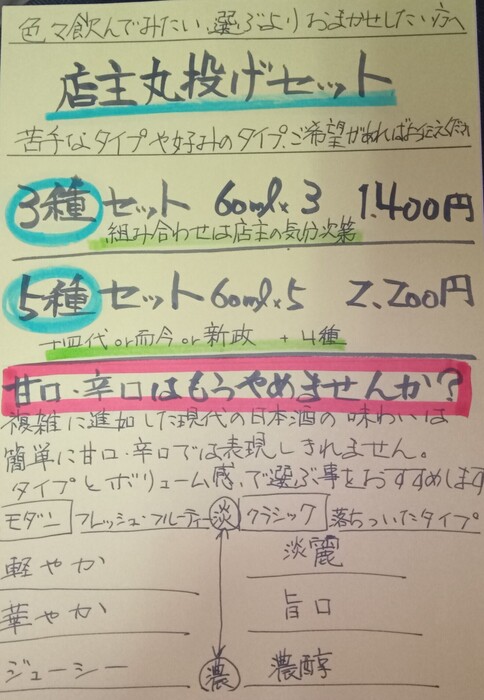 色々飲んでみたい、選ぶよりおまかせしたい方へ
店主丸投げセット
苦手なタイプや好みのタイプ、ご希望があればお伝えください
3種セット 60ml×3 1.400円
組み合わせは店主の気分次第
5種セット 60ml×5 2.200円
十四代or而今or新政 +4種
甘口・辛口はもうやめませんか?
複雑に進如した現代の日本酒の味わいは
簡単に甘口・辛口では表現しきれません。
タイプとボリューム感、で選ぶ事をおすすめします
モダン フレッシュ・フルーティー 淡 クラシック 落ちついたタイプ
軽やか 淡麗
華やか 旨口
ジューシー 濃 濃醇